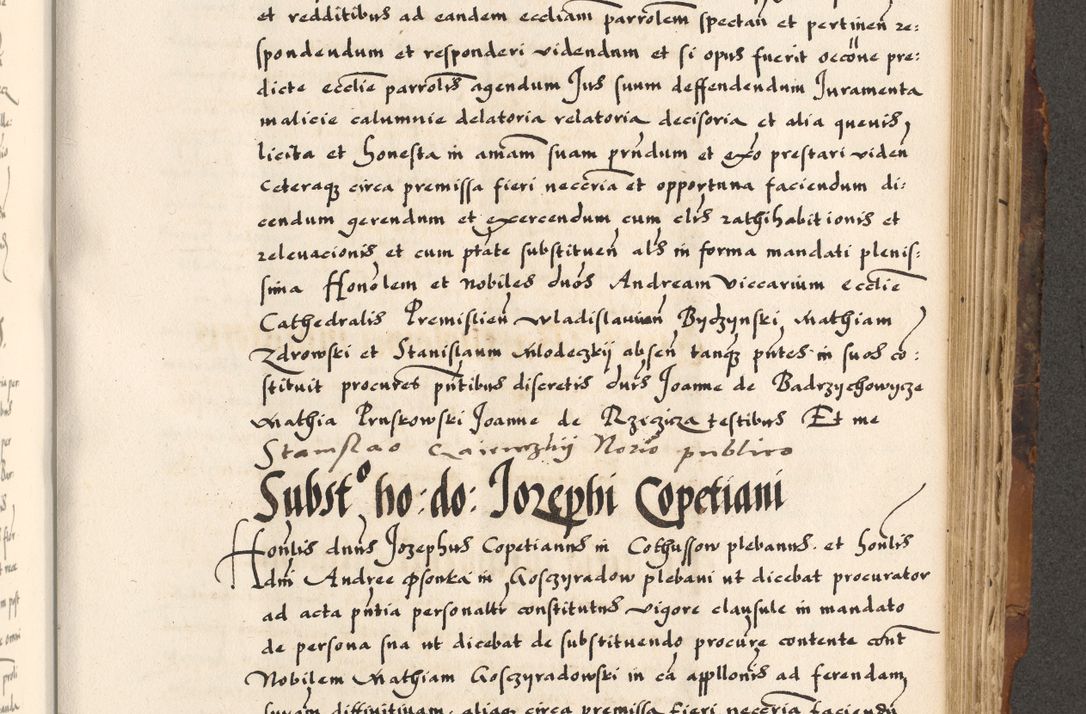 et redditibus ad eandem eccliam parrolem spectan et pertinen re:
spondendum et responderi videndum et si opus fuerit occone pre:
dicte ecclie parrolis agendum Jus suum deffendendum Juramenta
malicie calumnie delatoria relatoria decisoria et alia quevis
licita et honesta in amam suam prndum et exo prestari viden
Ceteraq circa premissa fieri neccria et opportuna faciendum di:
cendum gerendum et exercendum cum clis rathihabitionis et
relevacionis et cum ptate substituen als in forma mandati plenis:
sima Honolem et Nobiles duos Andream Viccarium ecclie
Cathedralis Premislien Wladislauien Bydzynski Mathiam
Zdrowski et Stanislaum Wlodeczkij absen tanq pntes in suos co:
stituit procures pntibus discretis duis Joanne de Badrzychowycze
Mathia Pruskowski Joanne de Rzeczicza testibus Et me
Stanislao Norio publico
Substo ho: do: Jozephi Copetiani
Honlis dnus Jozephus Copetianus in Cothussow plebanus et honlis
dni Andree Psonka in Gosczyradow plebani ut dicebat procurator
ad acta pntia personaltr constitutus vigore clausule in mandato
de persona sua ut dicebat de substituendo procure contente const
Nobilem Mathiam Gosczyradowski in ca appllonis ad ferendam
suam diffinitivam aliaq circa premissa fieri neccria faciendu